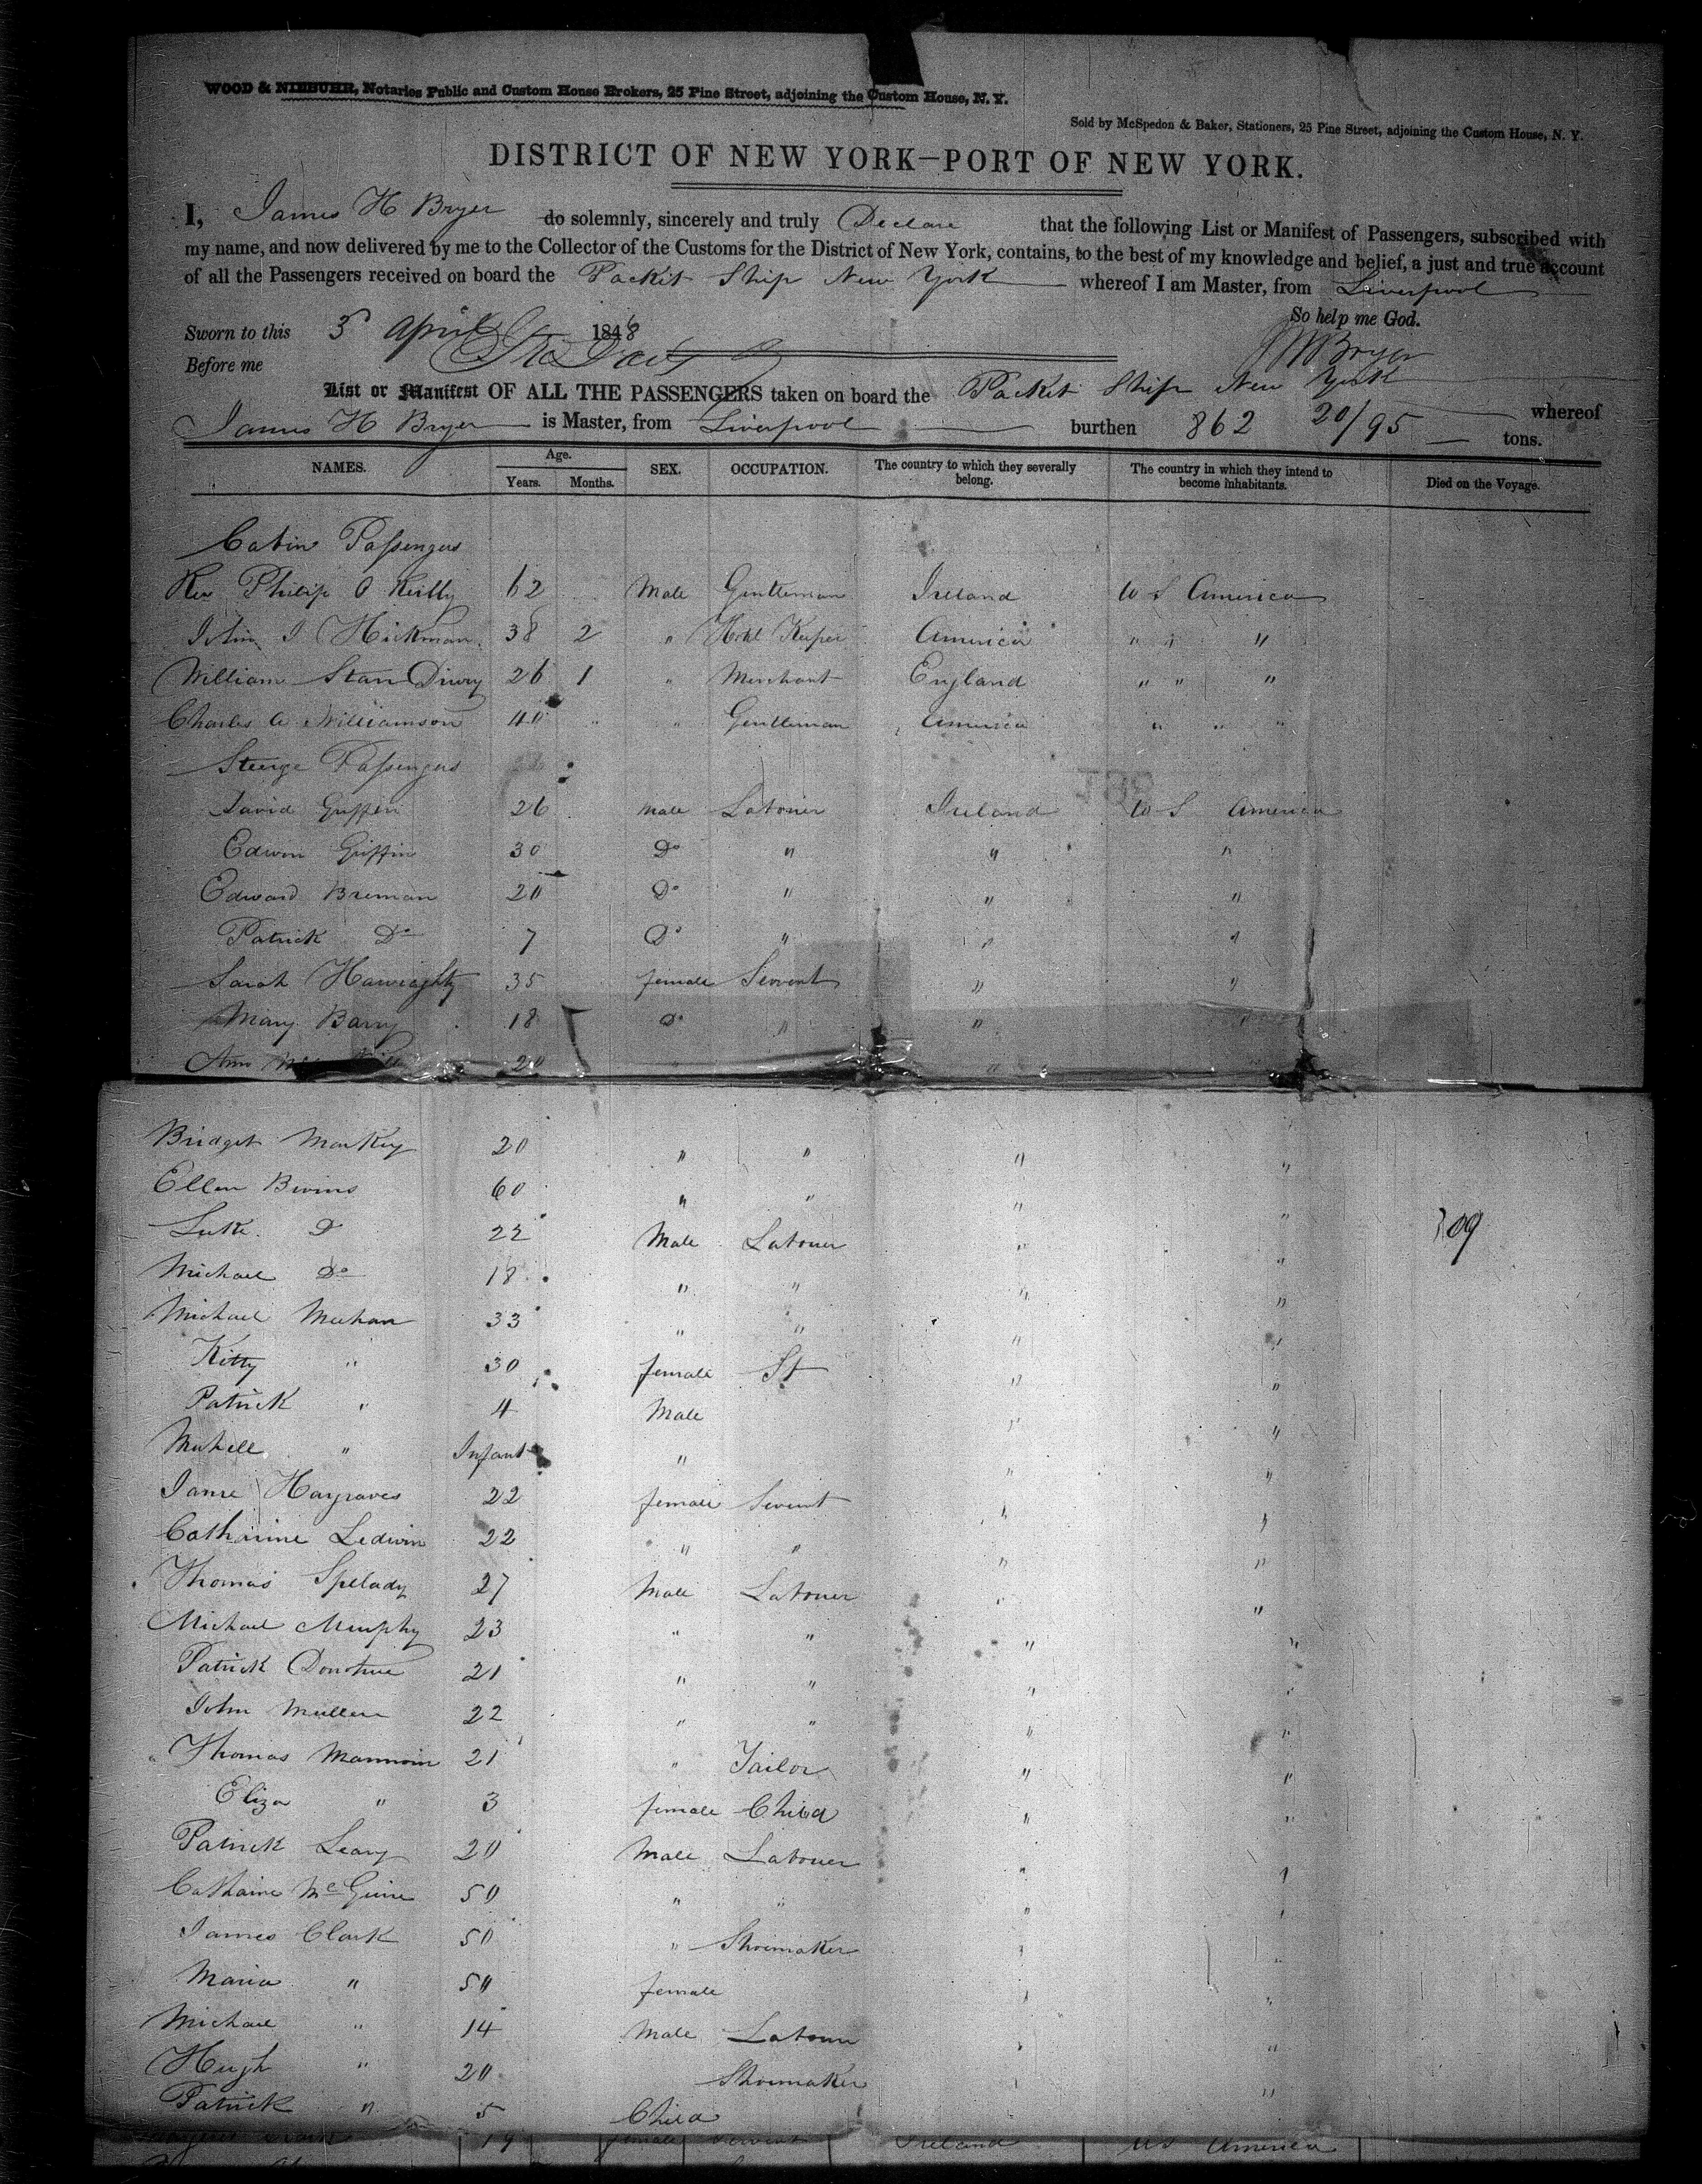 WOOD & NIEBUHR, Notaries Public and Custom House Brokers, 25 Pine Street, adjoining the Custom House, N. Y.
Sold by McSpedon & Baker, Stationers, 25 Pine Street, adjoining the Custom House, N. Y.
DISTRICT OF NEW YORK—PORT OF NEW YORK.
I, James H Bryer do solemnly, sincerely and truly Declare that the following List or Manifest of Passengers, subscribed with
my name, and now delivered by me to the Collector of the Customs for the District of New York, contains, to the best of my knowledge and belief, a just and true account
of all the Passengers received on board the Packet Ship New York whereof I am Master, from Liverpool
So help me God.
Sworn to this 5 April 1848
Before me J H Bryer
List or Manifest OF ALL THE PASSENGERS taken on board the Packet Ship New York whereof
James H Bryer is Master, from Liverpool burthen 862 20/95 tons.
NAMES. Age. Years. Months. SEX. OCCUPATION. The country to which they severally belong. The country in which they intend to become inhabitants. Died on the Voyage.
Cabin Passengers
Rev Philip O Reilly 62 Male Gentleman Ireland U S America
John I Hickman 38 2 " Hotl Keeper America " " "
William Stan Drury 26 1 " Merchant England " " "
Charles A Williamson 40 " " Gentleman America " " "
Steerge Passengers
David Griffin 26 male Labourer Ireland U S America
Edwin Griffin 30 Do " " "
Edward Brennan 20 Do " " "
Patrick Do 7 Do " " "
Sarah 35 female Servent " "
Mary Barry 18 Do " " "
Ann 20 "
Bridget Markey 20 " " " "
Ellen Bivins 60 " " " "
Luke D 22 Male Labouer " "
Michael Do 18 " " " "
Michael Meehan 33 " " " "
Kitty " 30 female St " "
Patrick " 4 Male " "
Michell " Infant " " "
Jame Hargraves 22 female Servent " "
Catharine Ledwin 22 " " " "
Thomas Spelady 27 Male Labouer " "
Michael Murphy 23 " " " "
Patrick Donohue 21 " " " "
John Mullen 22 " " " "
Thomas Mannoin 21 " Tailor " "
Eliza " 3 female Child " "
Patrick Leary 20 Male Labouer " "
Cathaine McGuire 50 " " " "
James Clark 50 " Shoemaker " "
Maria " 50 female " "
Michael " 14 Male Labouer " "
Hugh " 20 Shoemaker " "
Patrick " 5 Child
309
19 female Servent Ireland US America